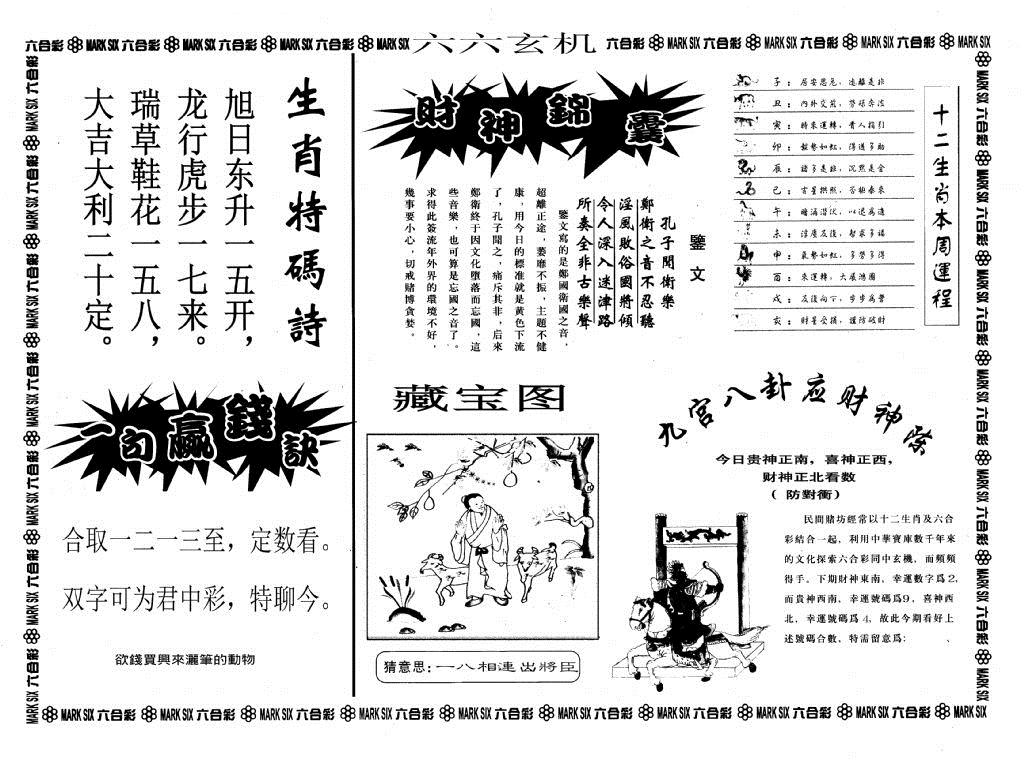 六合彩 MARK SIX 六合彩 MARK SIX 六合彩 MARK SIX 六合彩 MARK SIX
六六玄机
六合彩 MARK SIX 六合彩 MARK SIX 六合彩 MARK SIX 六合彩 MARK SIX
生肖特碼詩
旭日东升一五开，
龙行虎步一七来。
瑞草鞋花一五八，
大吉大利二十定。
一句贏錢訣
合取一二一三至，定数看。
双字可为君中彩，特聊今。
欲錢買興來灑筆的動物
財神錦囊
鑒文
孔子聞衛樂
鄭衛之音不忍聽
淫風敗俗國將傾
令人深入迷津路
所奏全非古樂聲
鑒文寫的是鄭國衛國之音，
超離正途，萎靡不振，主題不健
康，用今日的標准就是黄色下流
了，孔子聞之，痛斥其非，后來
鄭衛終于因文化墮落而忘國，這
些音樂，也可算是忘國之音了。
求得此簽流年外界的環境不好，
幾事要小心，切戒賭博貪婪。
十二生肖本周運程
子：居安思危，遠離是非
丑：内外交煎，勞碌奔波
寅：時來運轉，貴人指引
卯：氣勢如虹，得道多助
辰：諸多是非，沉默是金
巳：吉星拱照，否極泰來
午：
未：
申：氣勢如虹，多勞多得
酉：來運轉，大展鴻圖
戌：
亥：
藏宝图
猜意思：一八相連出將臣
九宫八卦应财神
今日贵神正南，喜神正西，
财神正北看数
（防對衝）
民間賭坊經常以十二生肖及六合
彩結合一起，利用中華寶庫數千年來
的文化探索六合彩同中玄機，而頻頻
得手。下期財神東南，幸運數字爲2，
而貴神西南，幸運號碼爲9，喜神西
北，幸運號碼爲 4，故此今期看好上
述號碼合數，特需留意爲：
MARK SIX 六合彩 MARK SIX 六合彩 MARK SIX 六合彩 MARK SIX 六合彩 MARK SIX 六合彩 MARK SIX 六合彩 MARK SIX 六合彩 MARK SIX 六合彩 MARK SIX 六合彩 MARK SIX